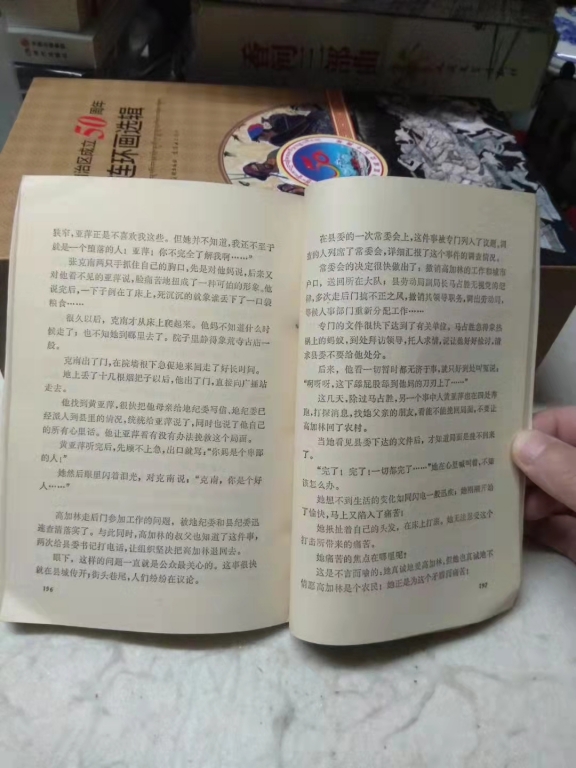 香河三部曲
治区成立50周年
连环画选辑
50
狭窄，亚萍正是不喜欢我这些。但她并不知道，我还不至于
就是一个堕落的人；亚萍；你不完全了解我啊……”
张克南两只手抓住自己的胸口，先是对他妈说，后来又
对他看不见的亚萍说，脸痛苦地扭成了一种可怕的形象。他
说完后，一下子倒在了床上，死沉沉的就象谁丢下了一口袋
粮食……
很久以后，克南才从床上爬起来。他妈不知道什么时
候走了；也不知她到哪里去了。院子里静得象荒寺古庙一
般。
克南出了门，在院墙根下急促地来回走了好长时间。
地上丢了十几根烟把子以后，他出了门，直接向广播站
走去。
他找到黄亚萍，很快把他母亲给地纪委写信、地纪委已
经派人到县里的情况，统统给亚萍说了，同时也说了他自己
的所有心里话。他让亚萍看有没有办法挽救这个局面。
黄亚萍听完后，先顾不上急，出口就骂：“你妈是个卑鄙
的人！”
她然后眼里闪着泪光，对克南说：“克南，你是个好
人……”
高加林走后门参加工作的问题，被地纪委和县纪委迅
速查清落实了。与此同时，高加林的叔父也知道了这件事，
两次给县委书记打电话，让组织坚决把高加林退回去。
眼下，这样的问题一直就是公众最关心的。这事很快
就在县城传开；街头巷尾，人们纷纷在议论。
196
在县委的一次常委会上，这件事被专门列入了议题，调
查的人列席了常委会，详细汇报了这个事件的调查情况。
常委会的决定很快做出了：撤销高加林的工作和城市
户口，送回所在大队；县劳动局副局长马占胜无视党的纪
律，多次走后门搞不正之风，撤销其领导职务，调出劳动局，
等候人事部门重新分配工作……
专门的文件很快下达到了有关单位。马占胜急得象热
锅上的蚂蚁，到处拜访领导，托人求情，
求县委不要给他处分。
后来，他看一切暂时都无济于事，就只好到处叫冤说：
“啊呀呀，这下舔屁股舔到他妈的刀刃上了……”
这几天，除过马占胜，另一个事中人黄亚萍也在四处奔
跑，打探消息，找她父亲的朋友，看能不能挽回局面，不要让
高加林回了农村。
当她看见县委下达的文件后，才知道局面是挽不回来
了。
“完了！完了！一切都完了……”她在心里喊叫着，不知
该怎么办。
她想不到生活的变化如同闪电一般迅疾；她刚刚开始
了愉快，马上又陷入了痛苦！
她抓扯着自己的头发，在床上打滚，她无法忍受这个
打击所带来的痛苦。
她痛苦的焦点在哪里呢？
这是不言而喻的，她真诚地爱高加林，但她也真诚地不
情愿高加林是个农民；她正是为这个矛盾而痛苦！
197